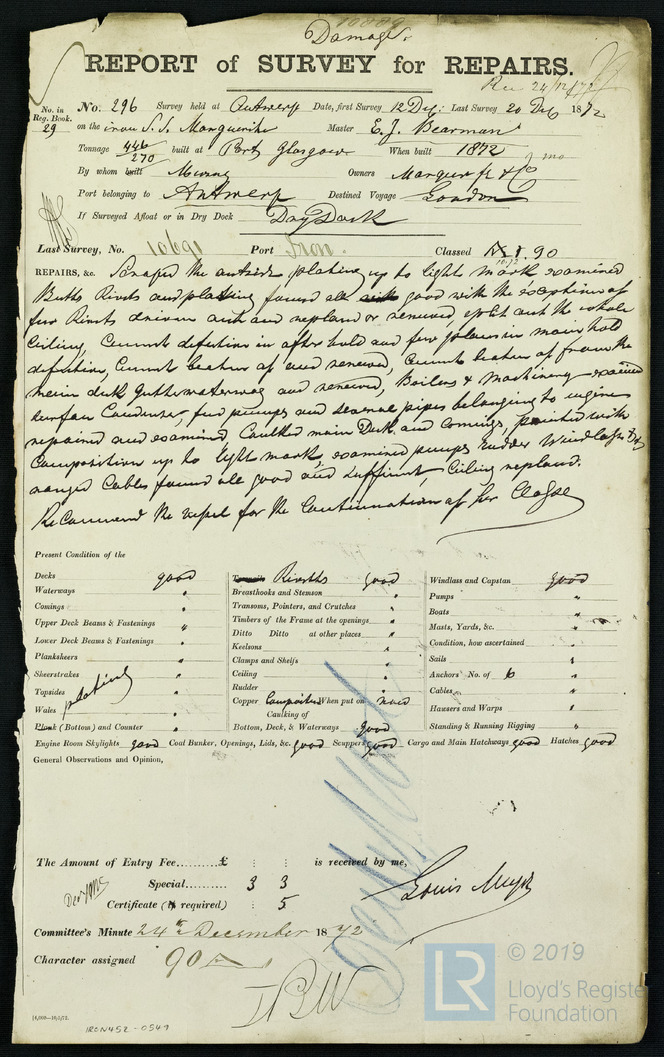 Damage.
REPORT of SURVEY for REPAIRS.
Rec 24/12/72
No. in Reg. Book. 29
No. 296 Survey held at Antwerp Date, first Survey 12 Dec: Last Survey 20 Dec 1872
on the iron S.S. Marguerite Master E. J. Bearman
Tonnage 446 270 built at Port Glasgow When built 1872 mo
By whom built Murray Owners & Co
Port belonging to Antwerp Destined Voyage London
If Surveyed Afloat or in Dry Dock Dry Dock
Last Survey, No. 10691 Port Iron. Classed 90
10.72
REPAIRS, &c. Scraped the outside plating up to light mark examined
Butts Rivets and plating found all good with the exception of
few Rivets driven out and replaced or renewed, out the whole
Ceiling, Cement defective in after hold and few places in main hold
defective, Cement beaten of and renewed, Cement beaten of from the
main deck Gutterwaterway and renewed, Boilers & Machinery examined
surface Condenser, feed pumps and several pipes belonging to engine
repaired and examined Caulked main Deck and comings, painted with
Composition up to light mark, examined pumps rudder Windlass &
ranged Cables found all good and sufficient, Ceiling replaced.
Recommend the vessel for the Continuation of her Classe
Present Condition of the
Decks good
Waterways "
Comings "
Upper Deck Beams & Fastenings "
Lower Deck Beams & Fastenings "
Planksheers "
Sheerstrakes "
Topsides "
Wales plating "
Plank (Bottom) and Counter "
Treenails Rivetts good
Breasthooks and Stemson "
Transoms, Pointers, and Crutches "
Timbers of the Frame at the openings "
Ditto Ditto at other places "
Keelsons "
Clamps and Shelfs "
Ceiling "
Rudder "
Copper Composition When put on now
Caulking of
Bottom, Deck, & Waterways good
Windlass and Capstan good
Pumps "
Boats "
Masts, Yards, &c. "
Condition, how ascertained "
Sails "
Anchors No. of 6 "
Cables "
Hausers and Warps "
Standing & Running Rigging "
Engine Room Skylights good Coal Bunker, Openings, Lids, &c. good Scuppers good Cargo and Main Hatchways good Hatches good
General Observations and Opinion,
The Amount of Entry Fee......... £ : : is received by me,
Special......... 3 3
Certificate (if required) : 5
Louis Meyer
Committee's Minute 24th December 1872
Character assigned 90A
[4,000—10/5/72.
IRON452-0549
© 2019
LR
Lloyd's Registe
Foundation